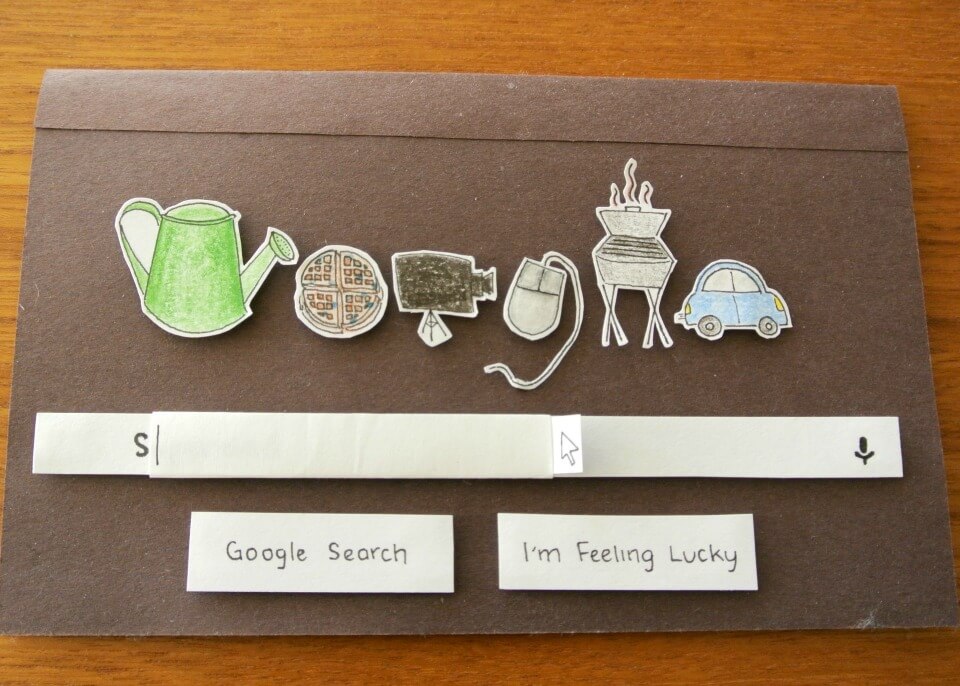 S|
Google Search
I'm Feeling Lucky